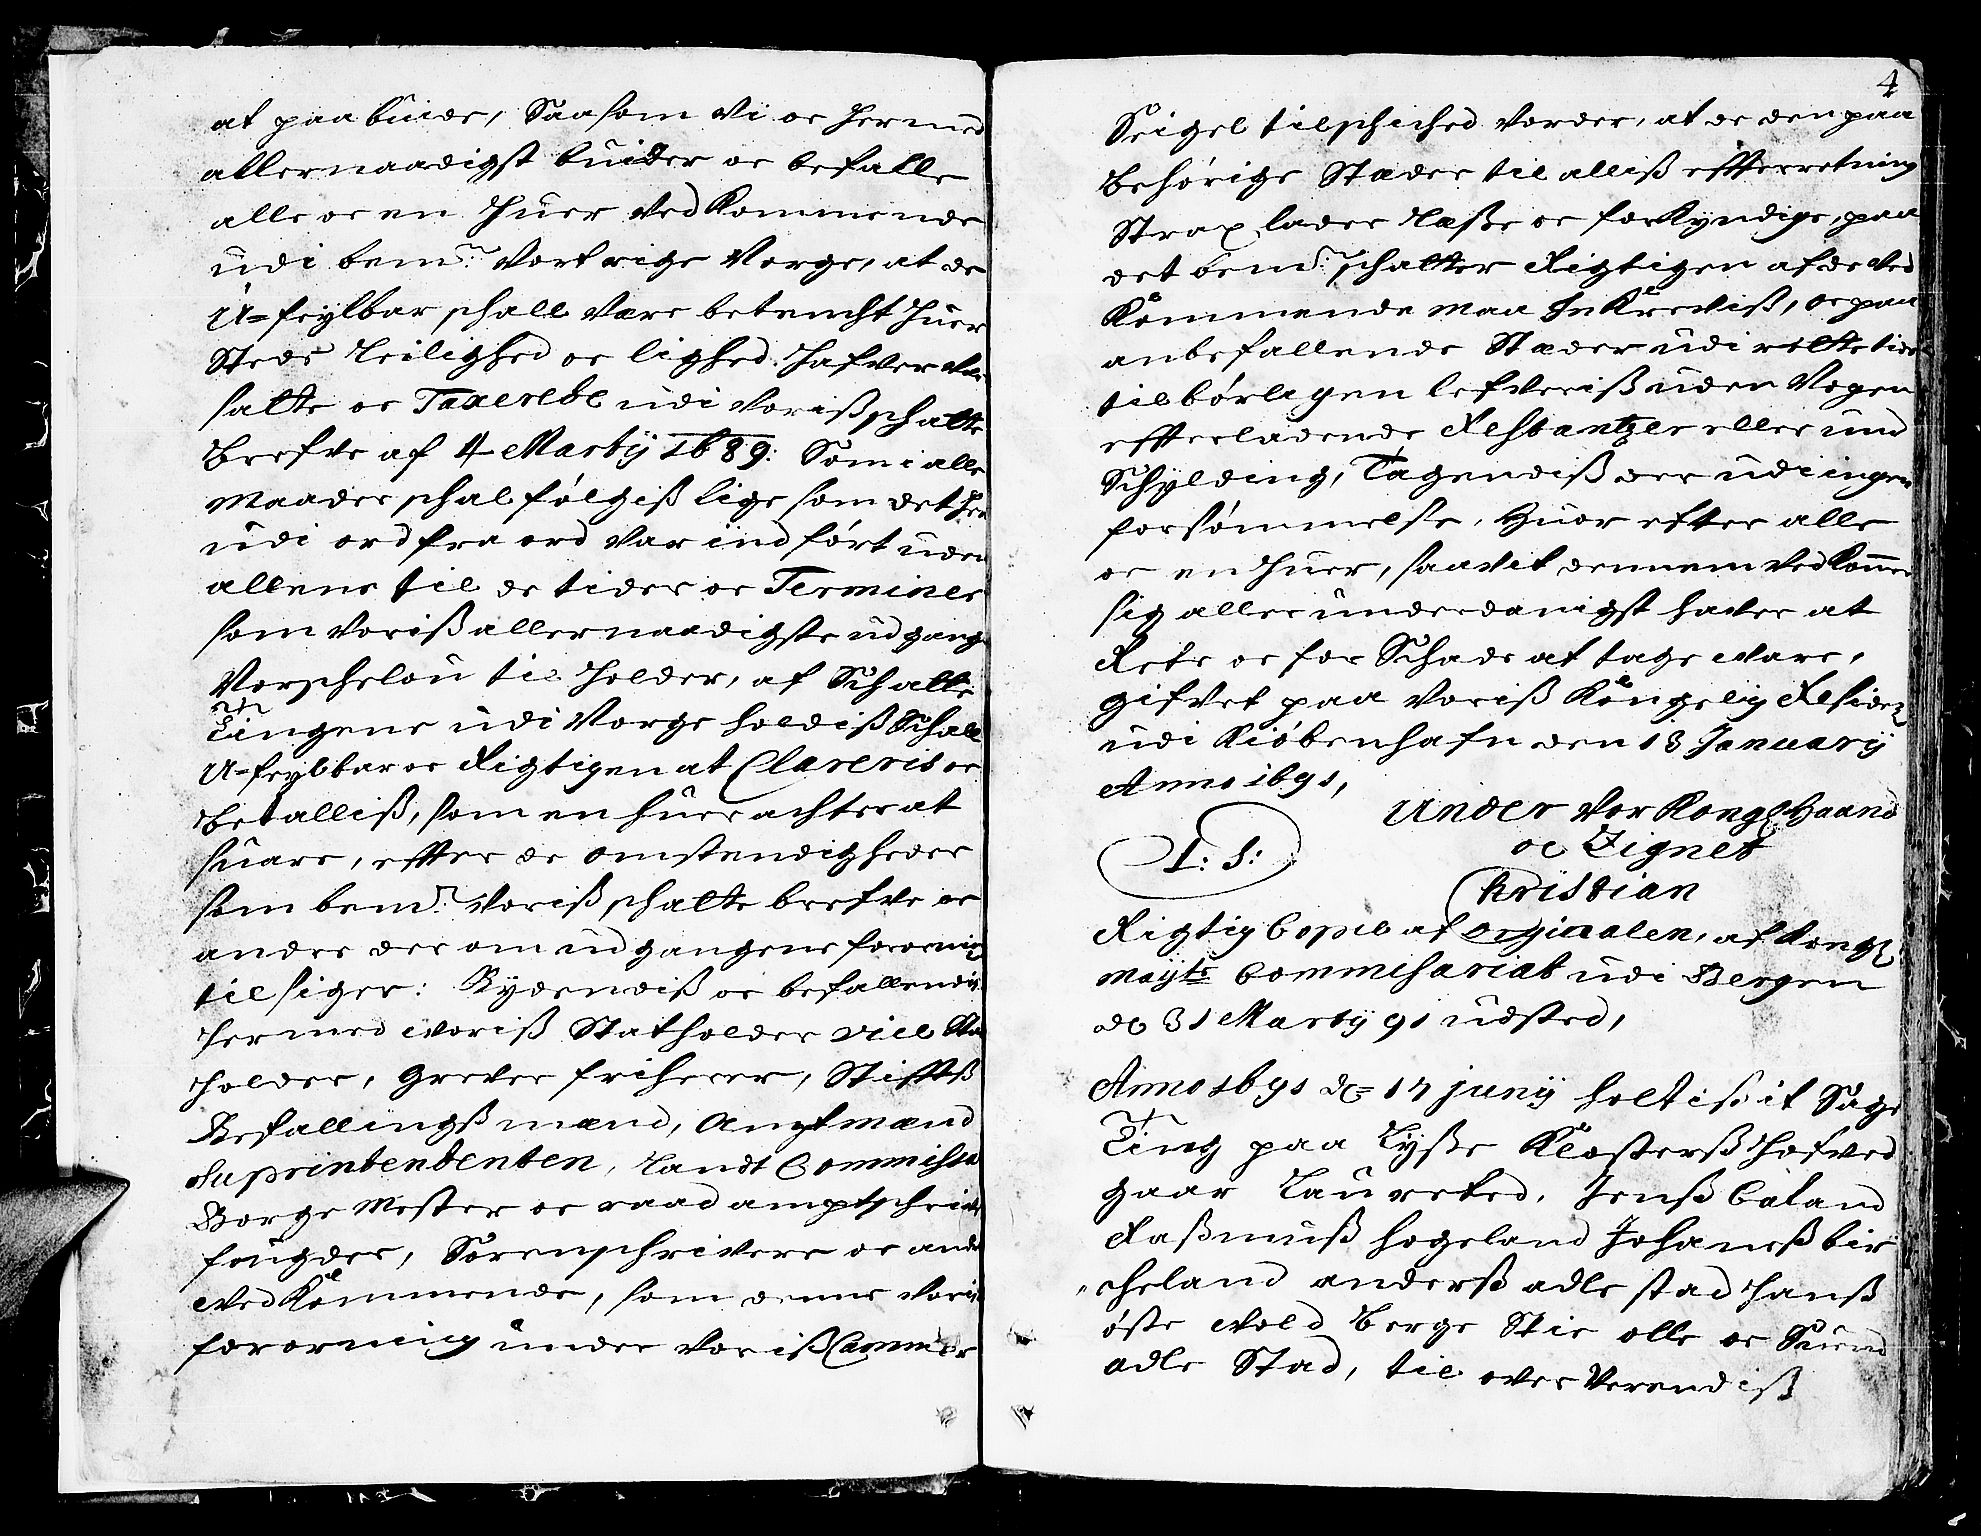 at paa buide, Saasom Vi oc hermed
allernaadigst buider oc befaller
alle oc en huer Vedkommende
udi bemt. Vort rige Norge, at de
U=feylbar schall være betencht huer
Steds Leilighed oc lighed hafver
satte oc Taxerebe udi voriß schatte
Brefve af 4 Martij 1689: Som i alle
Maader schal følgiß lige som det her
udi ord fra ord var indført uden
allene til de tider oc Terminer
som voriß allernaadigste udgangne
til holder, af Schatte
Tingene udi Norge holdiß Schall
U=feylbar oc Rigtigen at Clareris oc
betalliß, som en huer achter at
suare, effter de omstendigheder
som bemt. Voriß schatte brefve oc
andre der om udgangene forordning
tilsiger: Bydendiß oc befallendiß
hermed woriß Statholder vice Stat
holder, Grever friherrer, Stiffts
Befallingßmænd, Amptmænd
Superintendenten, Landt Commissar
Borge Mester oc raad amptschrifver
fougder, Sorenschrivere oc andre
vedkommende, som denne Voriß
forordning under Voriß Cammer
4
Seigel tilschiched vorder, at de den paa
behørige Stæder til alliß effterretning
Strax lader Læße oc forkyndige, paa
det bemt. schatter Rigtigen af de ved
kommende maa Inkreviß, oc paa
anbefallende Stæder udi rætte tider
tilbørligen lefveriß uden Nogen
effterladende Restantzer eller und
Schylding, Tagendiß der udi ingen
forsømmelse, Huor efter alle
oc en huer, saavit dennem vedkommer
sig aller underdanigst haver at
Rete oc for Schade at tage ware,
gifvet paa voriß Kongelig Residentz
udi Kiøbenhafn den 13 January
Anno 1691,
Under Vor Kongl Haand
L: S:
oc Zignet
Christian
Rigtig Copie af orginalen, af Kongl
Mayts Commisariat udi Bergen
de 31 Martij 91 udsted,
Anno 1691 de 17 junij holtiß it Sage
Ting paa Lyße Klosterß Hofved
gaar Laureted, Jenß
Raßmuß hogeland Johaneß bir
cheland anderß adle stad hanß
øste vold Berge Stie olle oc Suend
adle Stad, til over Værendiß